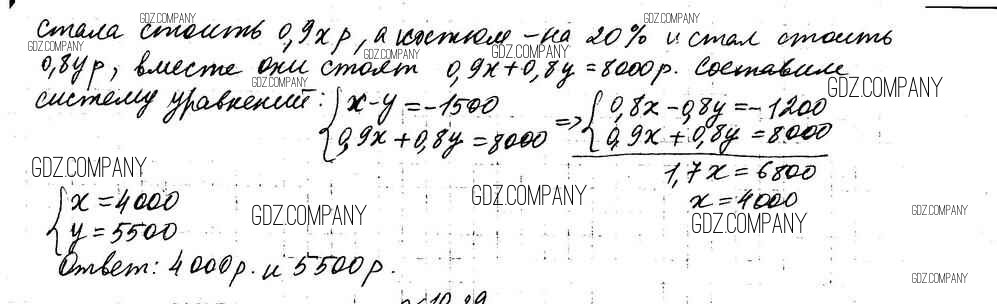 GDZ.COMPANY GDZ.COMPANY
стала стоить 0,9x р, а костюм – на 20% и стал стоить
GDZ.COMPANY GDZ.COMPANY GDZ.COMPANY
0,8y р, вместе они стоят 0,9x + 0,8y = 8000 р. Составим
GDZ.COMPANY GDZ.COMPANY
систему уравнений: { x - y = -1500 => { 0,8x - 0,8y = -1200
0,9x + 0,8y = 8000 0,9x + 0,8y = 8000
GDZ.COMPANY 1,7x = 6800
{ x = 4000 GDZ.COMPANY x = 4000
y = 5500 GDZ.COMPANY GDZ.COMPANY GDZ.COMPANY
Ответ: 4000 р. и 5500 р.
GDZ.COMPANY